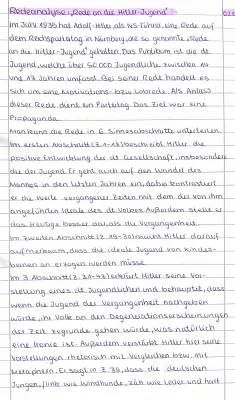 Redeanalyse: „Rede an die Hitler-Jugend"
Im Jahr 1935 hat Adolf Hitler als NS-Führer eine Rede auf
dem Reichsparteitag in Nürnberg, die so genannte „Rede
an die Hitler-Jugend" gehalten. Das Publikum ist die dt.
Jugend, welche über 50 000 Jugendliche zwischen
und 17 Jahren umfasst. Bei seiner Rede handelt es
sich um eine Motivations- bzw. Lobrede. Als Anlass
dieser Rede dient ein Parteitag. Das Ziel war eine
Propaganda.
Man kann die Rede in 6 Sinnesabschnitte unterteilen.
Im ersten Abschnitt (Z. 1-28) beschreibt Hitler die
positive Entwicklung der dt. Gesellschaft, insbesondere
die der Jugend. Er geht auch auf den Wandel des
Mannes in den letzten Jahren ein, dabei kontrastiert
er die Werte vergangener Zeiten mit dem der von ihm
angeführten Ideale des dt. Volkes. Außerdem stellt er
das Heutige besser dar, als die Vergangenheit.
Im zweiten Abschnitt macht Hitler darauf
aufmerksam, dass die ideale Jugend von Kindes-
beinen an erzogen werden müsse.
Im 3. Abschnitt erklärt Hitler seine Vor-
stellung eines dt. Jugendlichen und behauptet, dass
wenn die Jugend der Vergangenheit nachgeben
würde, ihr Volk an den Degenerationserscheinungen
der Zeit zugrunde gehen würde, was natürlich
eine Ironie ist. Außerdem verstärkt Hitler hier seine
Vorstellungen rhetorisch mit Vergleichen bzw. mit
Metaphern. Er sagt in Z. 39, dass die deutschen
Jungen „flink wie Windhunde, zäh wie Leder und hart